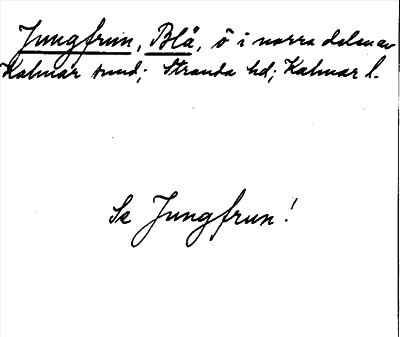 Jungfrun, Blå, ö i norra delen av
Kalmar sund; Stranda hd; Kalmar l.
Se Jungfrun!